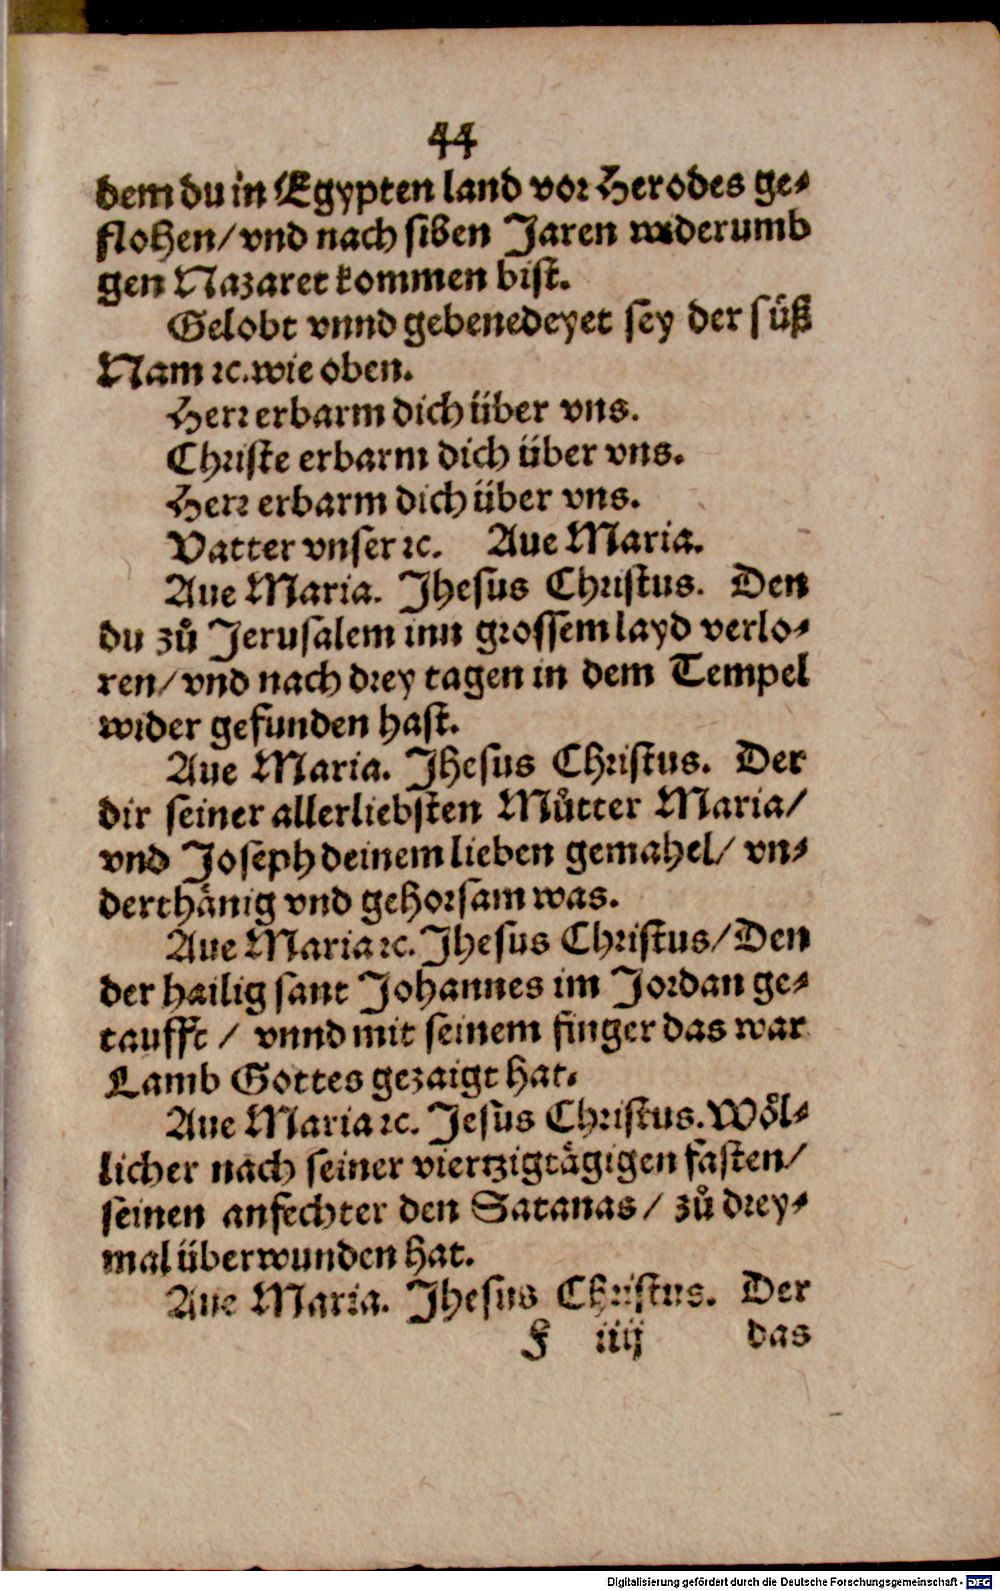 44
dem du in Egypten land vor Herodes ge-
flohen/ vnd nach siben Jaren widerumb
gen Nazaret kommen bist.
Gelobt vnnd gebenedeyet sey der süß
Nam ꝛc. wie oben.
Herr erbarm dich über vns.
Christe erbarm dich über vns.
Herr erbarm dich über vns.
Vatter vnser ꝛc. Aue Maria.
Aue Maria. Jhesus Christus. Den
du zů Jerusalem inn grossem layd verlo-
ren/ vnd nach drey tagen in dem Tempel
wider gefunden hast.
Aue Maria. Jhesus Christus. Der
dir seiner allerliebsten Můtter Maria/
vnd Joseph deinem lieben gemahel/ vn-
derthänig vnd gehorsam was.
Aue Maria ꝛc. Jhesus Christus/ Den
der hailig sant Johannes im Jordan ge-
taufft / vnnd mit seinem finger das war
Lamb Gottes gezaigt hat.
Aue Maria ꝛc. Jesus Christus. Wöl-
licher nach seiner viertzigtägigen fasten/
seinen anfechter den Satanas/ zů drey-
mal überwunden hat.
Aue Maria. Jhesus Christus. Der
F iiij das
Digitalisierung gefördert durch die Deutsche Forschungsgemeinschaft - DFG